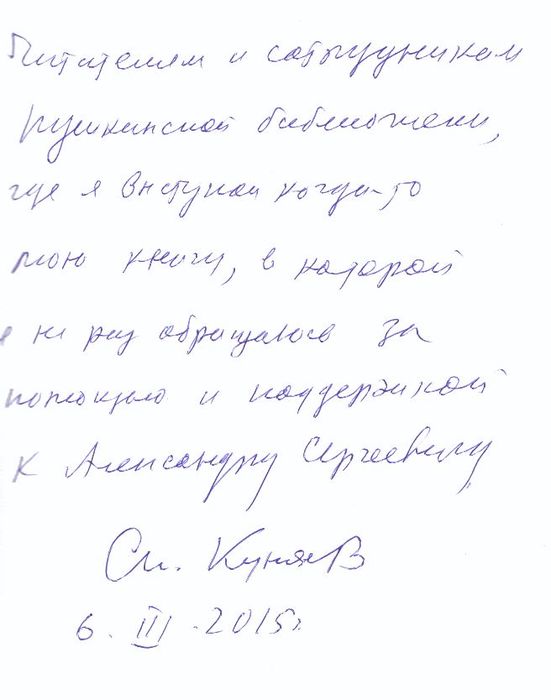 Читателям и сотрудникам
Пушкинской библиотеки,
где я выступал когда-то
мою книгу, в которой
я не раз обращаюсь за
помощью и поддержкой
к Александру Сергеевичу
Ст. Куняев
6. III. 2015г.